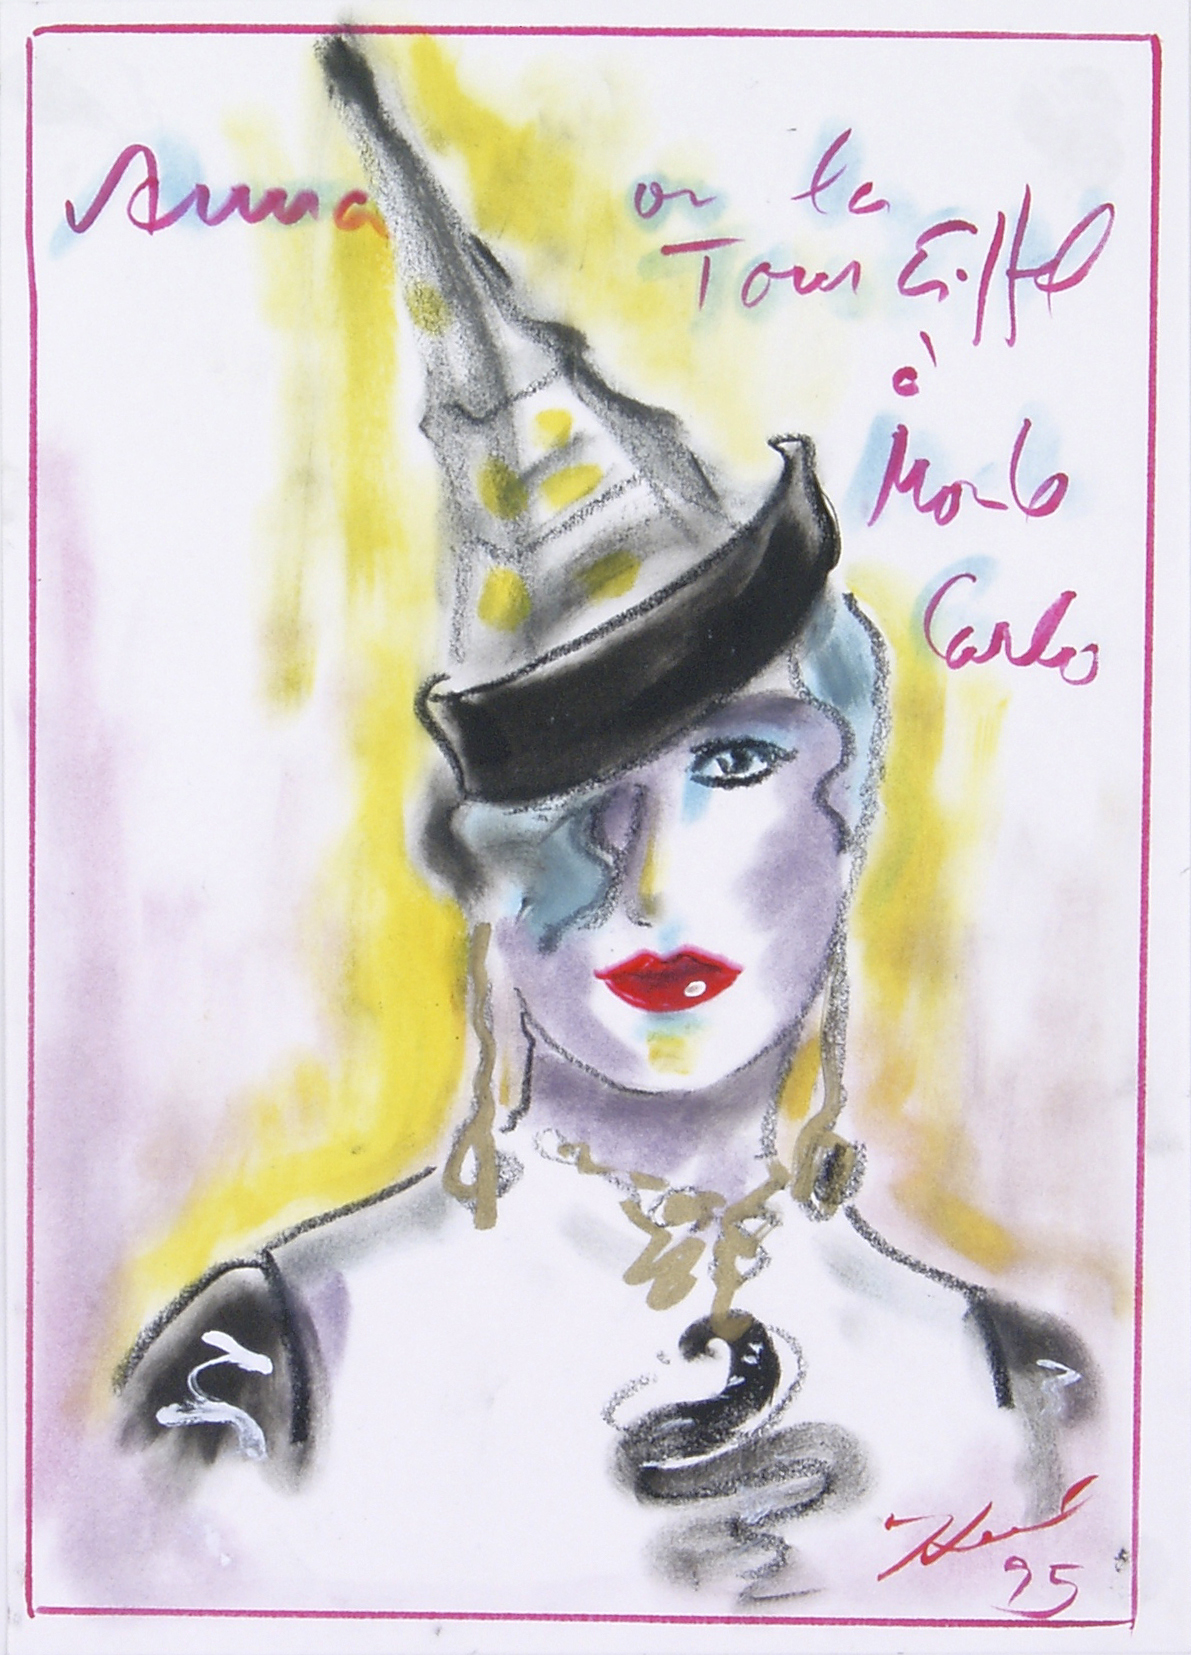 Anna ou la
Tour Eiffel
à
Monte
Carlo
95